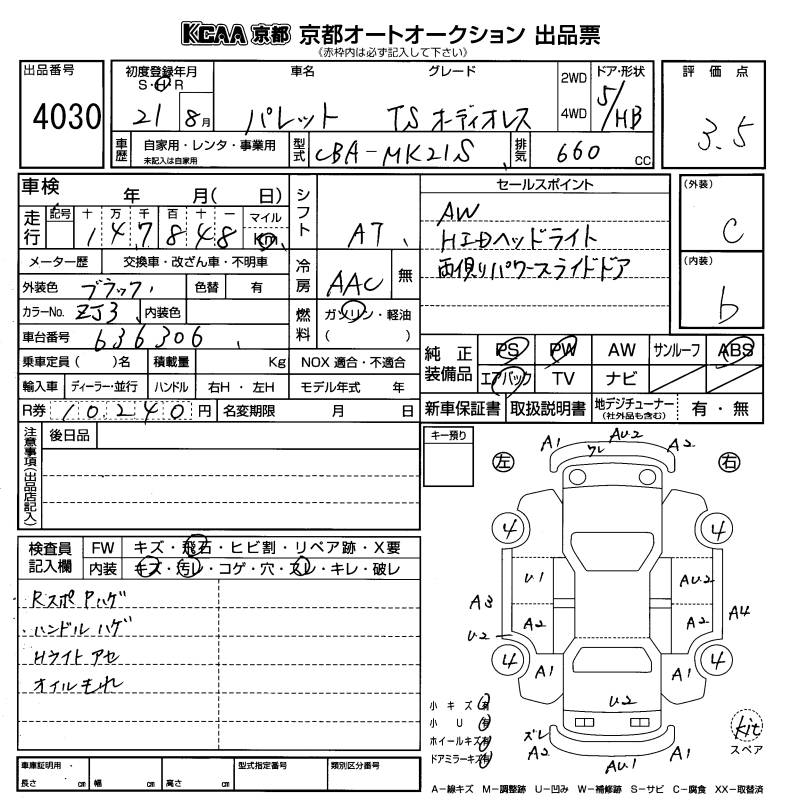 KCAA 京都 京都オートオークション 出品票
《赤枠内は必ず記入して下さい》
出品番号 初度登録年月 車名 グレード 2WD ドア・形状 評価点
S・H・R
4030 21 8月 パレット TS オーディオレス 4WD 5/HB 3.5
車歴 自家用・レンタ・事業用 型式 CBA-MK21S 排気 660 CC
未記入は自家用
車検 年 月( 日) シフト AT セールスポイント (外装)
AW
走行 記号 十 万 千 百 十 一 マイル
1 4 7 8 4 8 Km
HIDヘッドライト C
メーター歴 交換車・改ざん車・不明車 冷房 AAC 無 両側パワースライドドア (内装)
外装色 ブラック 色替 有 b
カラーNo. ZJ3 内装色 燃料 ガソリン・軽油
( )
車台番号 636306
乗車定員( )名 積載量 Kg NOX適合・不適合 純正装備品 PS PW AW サンルーフ ABS
輸入車 ディーラー・並行 ハンドル 右H・左H モデル年式 年 エアバック TV ナビ
R券 10240円 名変期限 月 日 新車保証書 取扱説明書 地デジチューナー 有・無
(社外品も含む)
注意事項(出品店記入) 後日品 キー預り
A1 AU2 A2
ワレ
左 右
4 4
検査員記入欄 FW キズ・飛石・ヒビ割・リペア跡・X要
内装 キズ・汚レ・コゲ・穴・スレ・キレ・破レ
U1 AU2
Rスポ Pハゲ A3 A2 A2 A4
ハンドル ハゲ U2
Hライト アセ 4 4
オイルもれ A1 A1
小キズ 有 U2
小U 有
ホイールキズ 有 ズレ kit
ドアミラーキズ 有 A2 AU1 A1 スペア
車庫証明用 型式指定番号 類別区分番号
長さ cm 幅 cm 高さ cm
A-線キズ M-調整跡 U-凹み W-補修跡 S-サビ C-腐食 XX-取替済